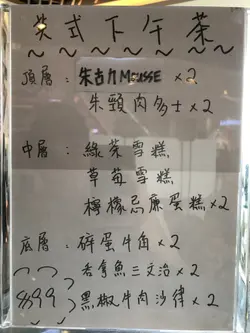 英式下午茶
頂層：朱古力MOUSSE×2
朱頸肉多士×2
中層：綠茶雪糕
草莓雪糕
檸檬忌廉蛋糕×2
底層：碎蛋牛角×2
吞拿魚三文治×2
黑椒牛肉沙律×2